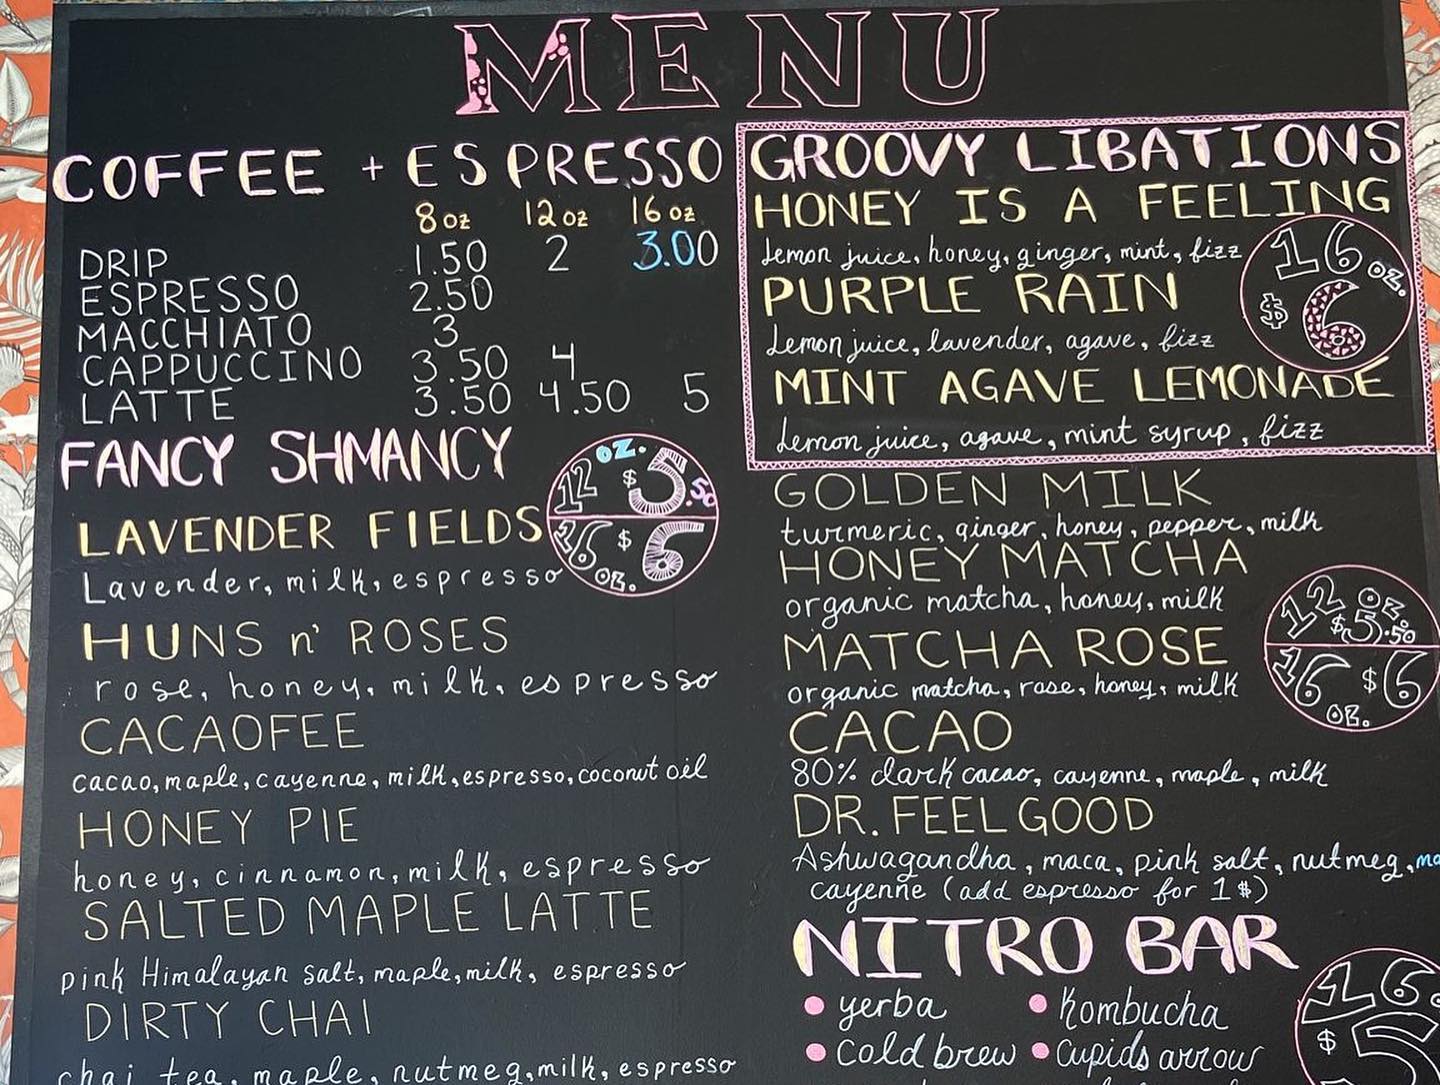 MENU
COFFEE + ESPRESSO
8 oz 12 oz 16 oz
DRIP 1.50 2 3.00
ESPRESSO 2.50
MACCHIATO 3
CAPPUCCINO 3.50 4
LATTE 3.50 4.50 5
FANCY SHMANCY
12 oz. $5.50
16 oz. $6
LAVENDER FIELDS
Lavender, milk, espresso
HUNS n' ROSES
rose, honey, milk, espresso
CACAOFEE
cacao, maple, cayenne, milk, espresso, coconut oil
HONEY PIE
honey, cinnamon, milk, espresso
SALTED MAPLE LATTE
pink Himalayan salt, maple, milk, espresso
DIRTY CHAI
chai tea, maple, nutmeg, milk, espresso
GROOVY LIBATIONS
HONEY IS A FEELING
Lemon juice, honey, ginger, mint, fizz
16 oz.
$6
PURPLE RAIN
Lemon juice, lavender, agave, fizz
MINT AGAVE LEMONADE
Lemon juice, agave, mint syrup, fizz
GOLDEN MILK
turmeric, ginger, honey, pepper, milk
HONEY MATCHA
organic matcha, honey, milk
12 oz. $5.50
16 oz. $6
MATCHA ROSE
organic matcha, rose, honey, milk
CACAO
80% dark cacao, cayenne, maple, milk
DR. FEEL GOOD
Ashwagandha, maca, pink salt, nutmeg,
cayenne (add espresso for 1$)
NITRO BAR
16
$5
yerba
kombucha
cold brew
cupids arrow